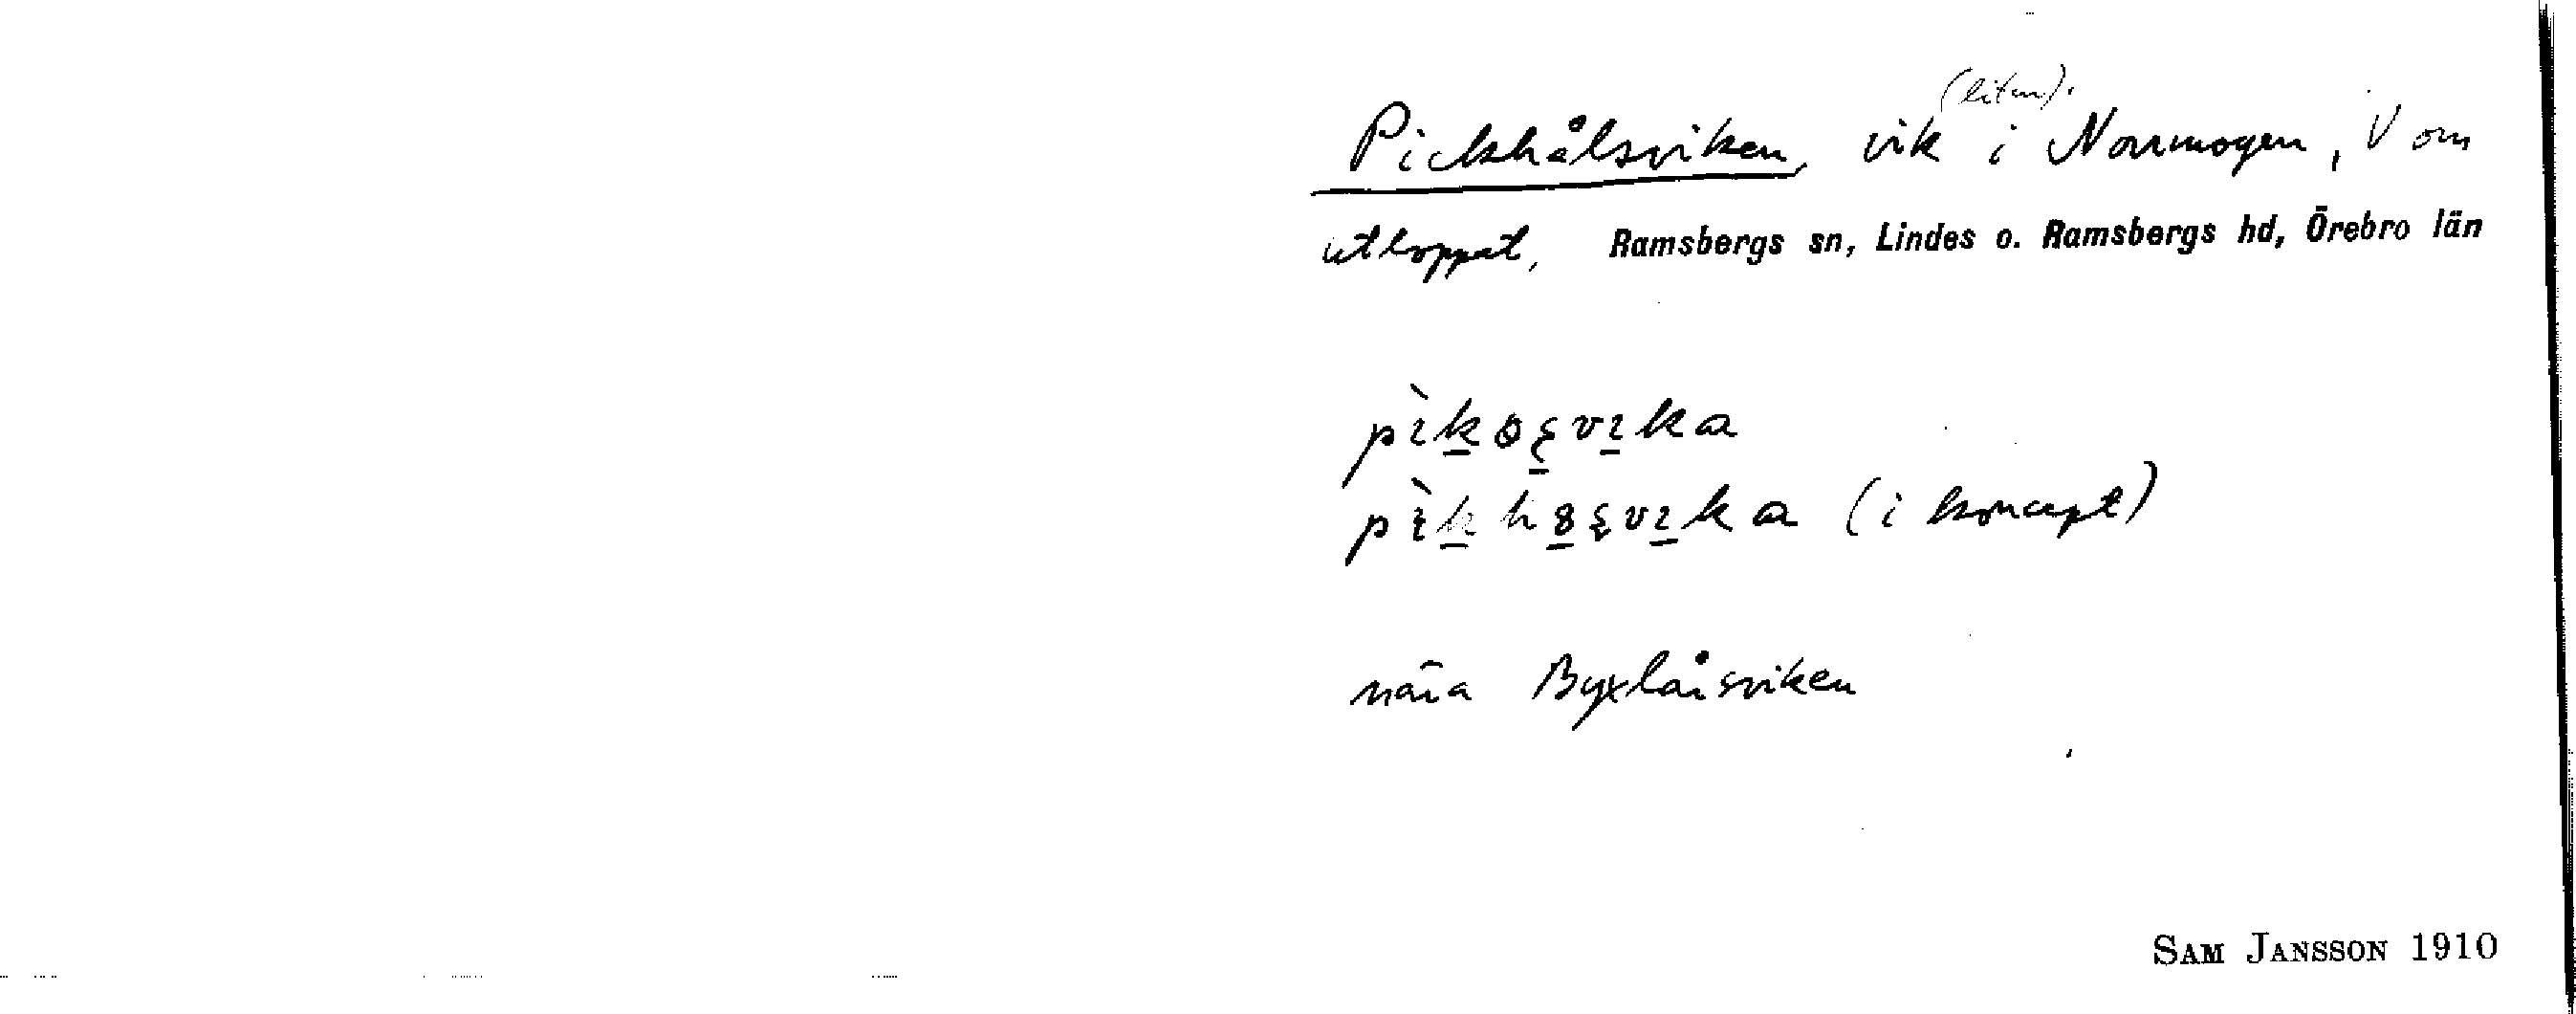 (liten).
Pickhålsviken, vik i Norrmogen, V om
utloppet, Ramsbergs sn, Lindes o. Ramsbergs hd, Örebro län
(i koncept)
nära Byxlåsviken
SAM JANSSON 1910